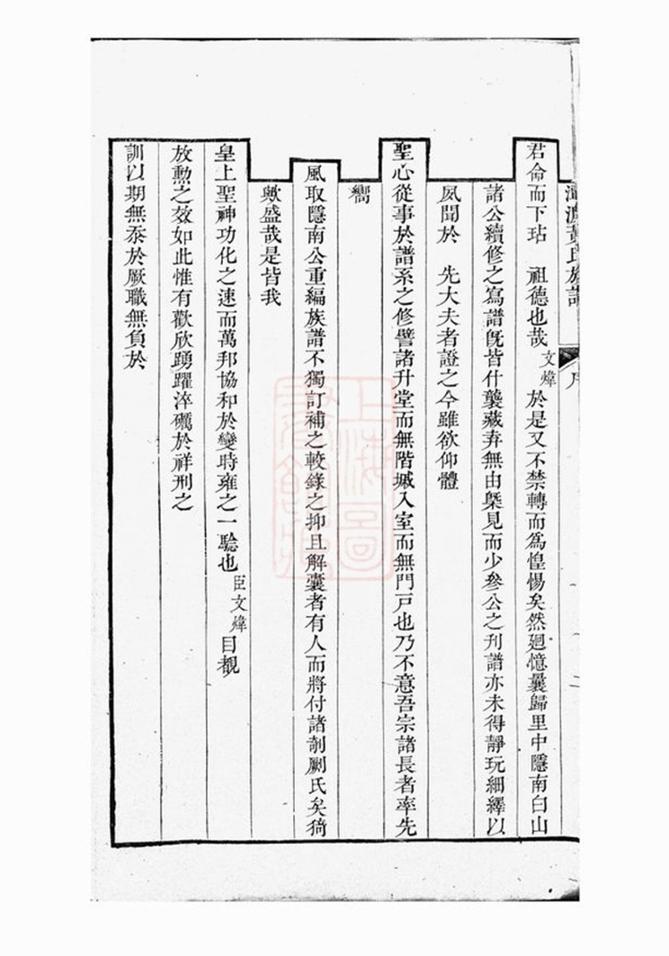 黃氏族譜
君命而下玷 祖德也哉文煒於是又不禁轉而為惶惕矣然廻憶曩歸里中隱南白山
諸公續修之寫譜旣皆什襲藏弆無由槩見而少參公之刊譜亦未得靜玩細繹以
夙聞於 先大夫者證之今雖欲仰體
聖心從事於譜系之修譬諸升堂而無階墄入室而無門戸也乃不意吾宗諸長者率先
嚮
風取隱南公重編族譜不獨訂補之較錄之抑且解囊者有人而將付諸剞劂氏矣猗
歟盛哉是皆我
皇上聖神功化之速而萬邦協和於變時雍之一騐也臣文煒目覩
放勳之效如此惟有歡欣踴躍淬礪於祥刑之
訓以期無忝於厥職無負於
上海圖書館藏